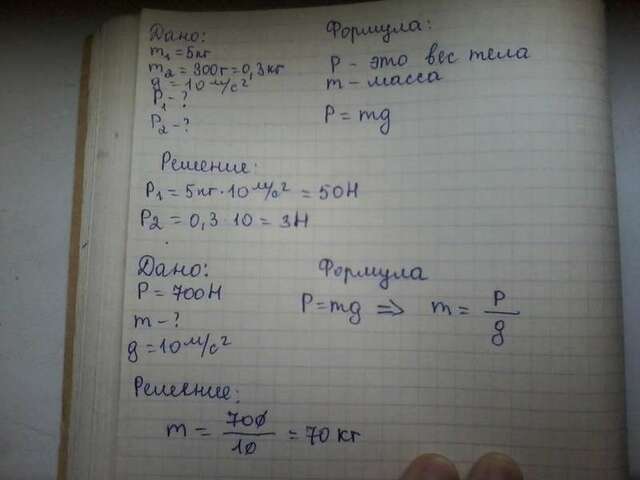 Дано:
m₁ = 5кг
m₂ = 300г = 0,3кг
g = 10 м/с²
P₁ - ?
P₂ - ?
Формула:
P - это вес тела
m - масса
P = mg
Решение:
P₁ = 5кг · 10 м/с² = 50Н
P₂ = 0,3 · 10 = 3Н
Дано:
P = 700Н
m - ?
g = 10 м/с²
Формула
P = mg ⇒ m = P/g
Решение:
m = 700/10 = 70 кг